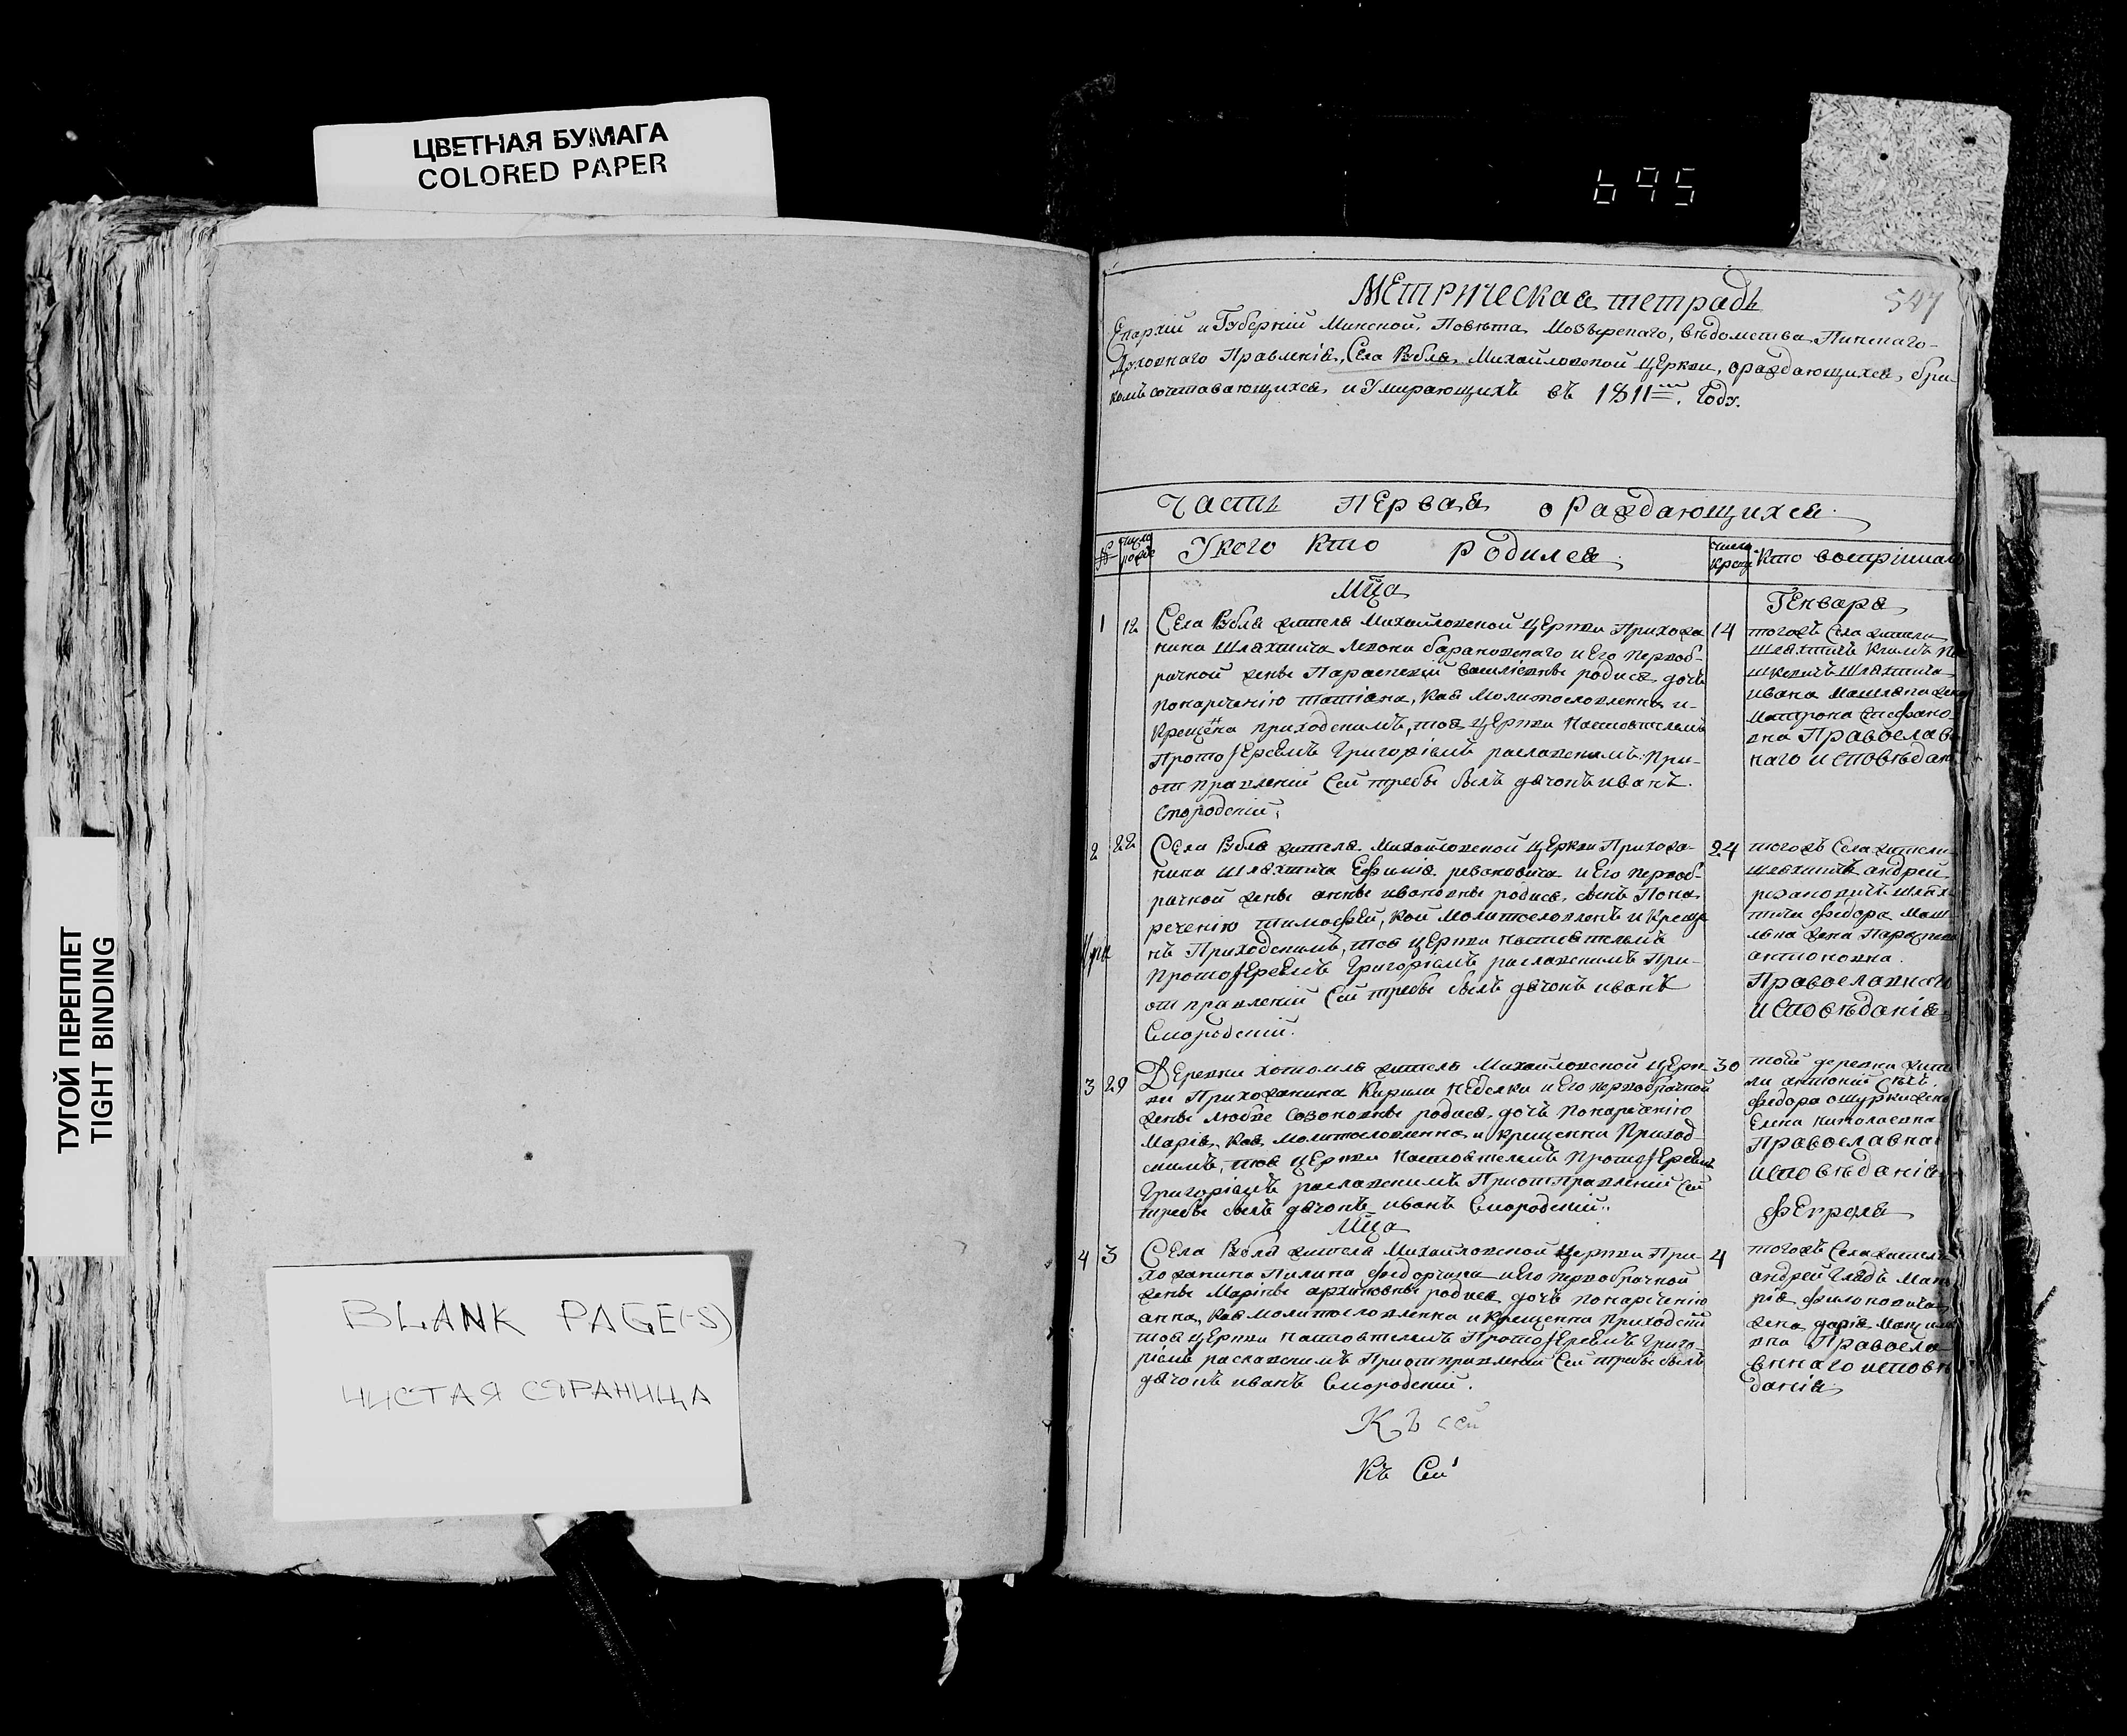 ЦВЕТНАЯ БУМАГА
COLORED PAPER
695
ТУГОЙ ПЕРЕПЛЕТ
TIGHT BINDING
BLANK PAGE(-S)
ЧИСТАЯ СТРАНИЦА
547
Метрическая тетрадь
Епархіи и Губерніи Минской, Повѣта Мозырскаго, вѣдомства Пинскаго
Духовнаго Правленія, Села Вубля Михайловской Церкви, ораждающихся, бра-
комъ сочетавающихся, и Умирающихъ въ 1811 Году.
Часть Первая о Раждающихся
№ число рожде Укого Кто родился число Крещ Кто воспріимал
Мца Генваря
1 12 Села Вубля жителя Михайловской Церкви Прихожа 14
нина Шляхтича Леона барановскаго и Его первоб-
рачной жены Параскевіи родися дочь
Понареченію татіана, Коя Молитвословленна и
Крещена приходскимъ, тоя Церкви Настоятелемъ
Протоіереемъ Григоріемъ раславскимъ При
отправленіи Сей требы былъ дячокъ иванъ
Смородскій,
тогожъ Села жители
шляхтичъ
шляхтича
ивана жена
Матрона Стефано-
вна Православ
наго исповѣдан
2 22 Села Вубля жителя Михайловской Церкви Прихожа- 24
нина Шляхтича Ефимія и Его первоб-
рачной жены анны ивановны родися сынъ Пона
реченію тимофей, Кой Молитвословленъ и Креще
нъ Приходскимъ, тоя Церкви настоятелемъ
Протоіереемъ Григоріемъ раславскимъ При-
отправленіи Сей требы былъ дячокъ иванъ
Смородскій.
тогожъ Села жители
шляхтичъ андрей
шлях
тича федора
жена
антоновна.
Православнаго
исповѣданія
3 29 Деревни хотомля жителя Михайловской Церк 30
ви Прихожанина Кирила Неделки и Его первобрачной
жены Любве Созоновны родися дочь Понареченію
Марія, Коя Молитвословленна и Крещенна Приход
скимъ, тоя Церкви Настоятелемъ Протоіереемъ
Григоріемъ раславскимъ Приотправленіи Сей
требы былъ дячокъ иванъ Смородскій.
тойже деревни жите
ли антоній
федора жена
Елена Николаевна
Православна
исповѣданія
Мца Февраля
4 3 Села Вубля жителя Михайловской Церкви При- 4
хожанина Пилипа федорчука и Его первобрачной
жены Марины архиповны родися дочь Понареченію
анна, Коя молитвословленна и Крещенна Приходски
тоя Церкви настоятелемъ Протоіереемъ Григо-
ріемъ раславскимъ Приотправленіи Сей требы былъ
дячокъ иванъ Смородскій.
тогожъ Села жители
андрей Гладъ
жена дарія
вна Правосла
внаго исповѣ
данія
Къ сей
Къ Сей